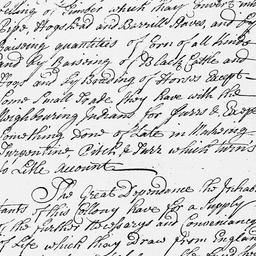 of Timber which they Convert into
Pipe, Hogshead and Barrill Staves, and by
Raiseing quantities of Corn of all kinds
and by Raiseing of Black Cattle and
Hogs and by Breeding of Horses Except
Some Small Trade they have with the
Neighbouring Indians for furrs &. Except
Something Done of Late in Makeing
Turpentine, Pitch & Tarr which turns
to Little account.
The Great Dependance the Inhab
tants of this Collony have for a Supply
of the further Necessarys and Conveniency
of Life which they draw from England